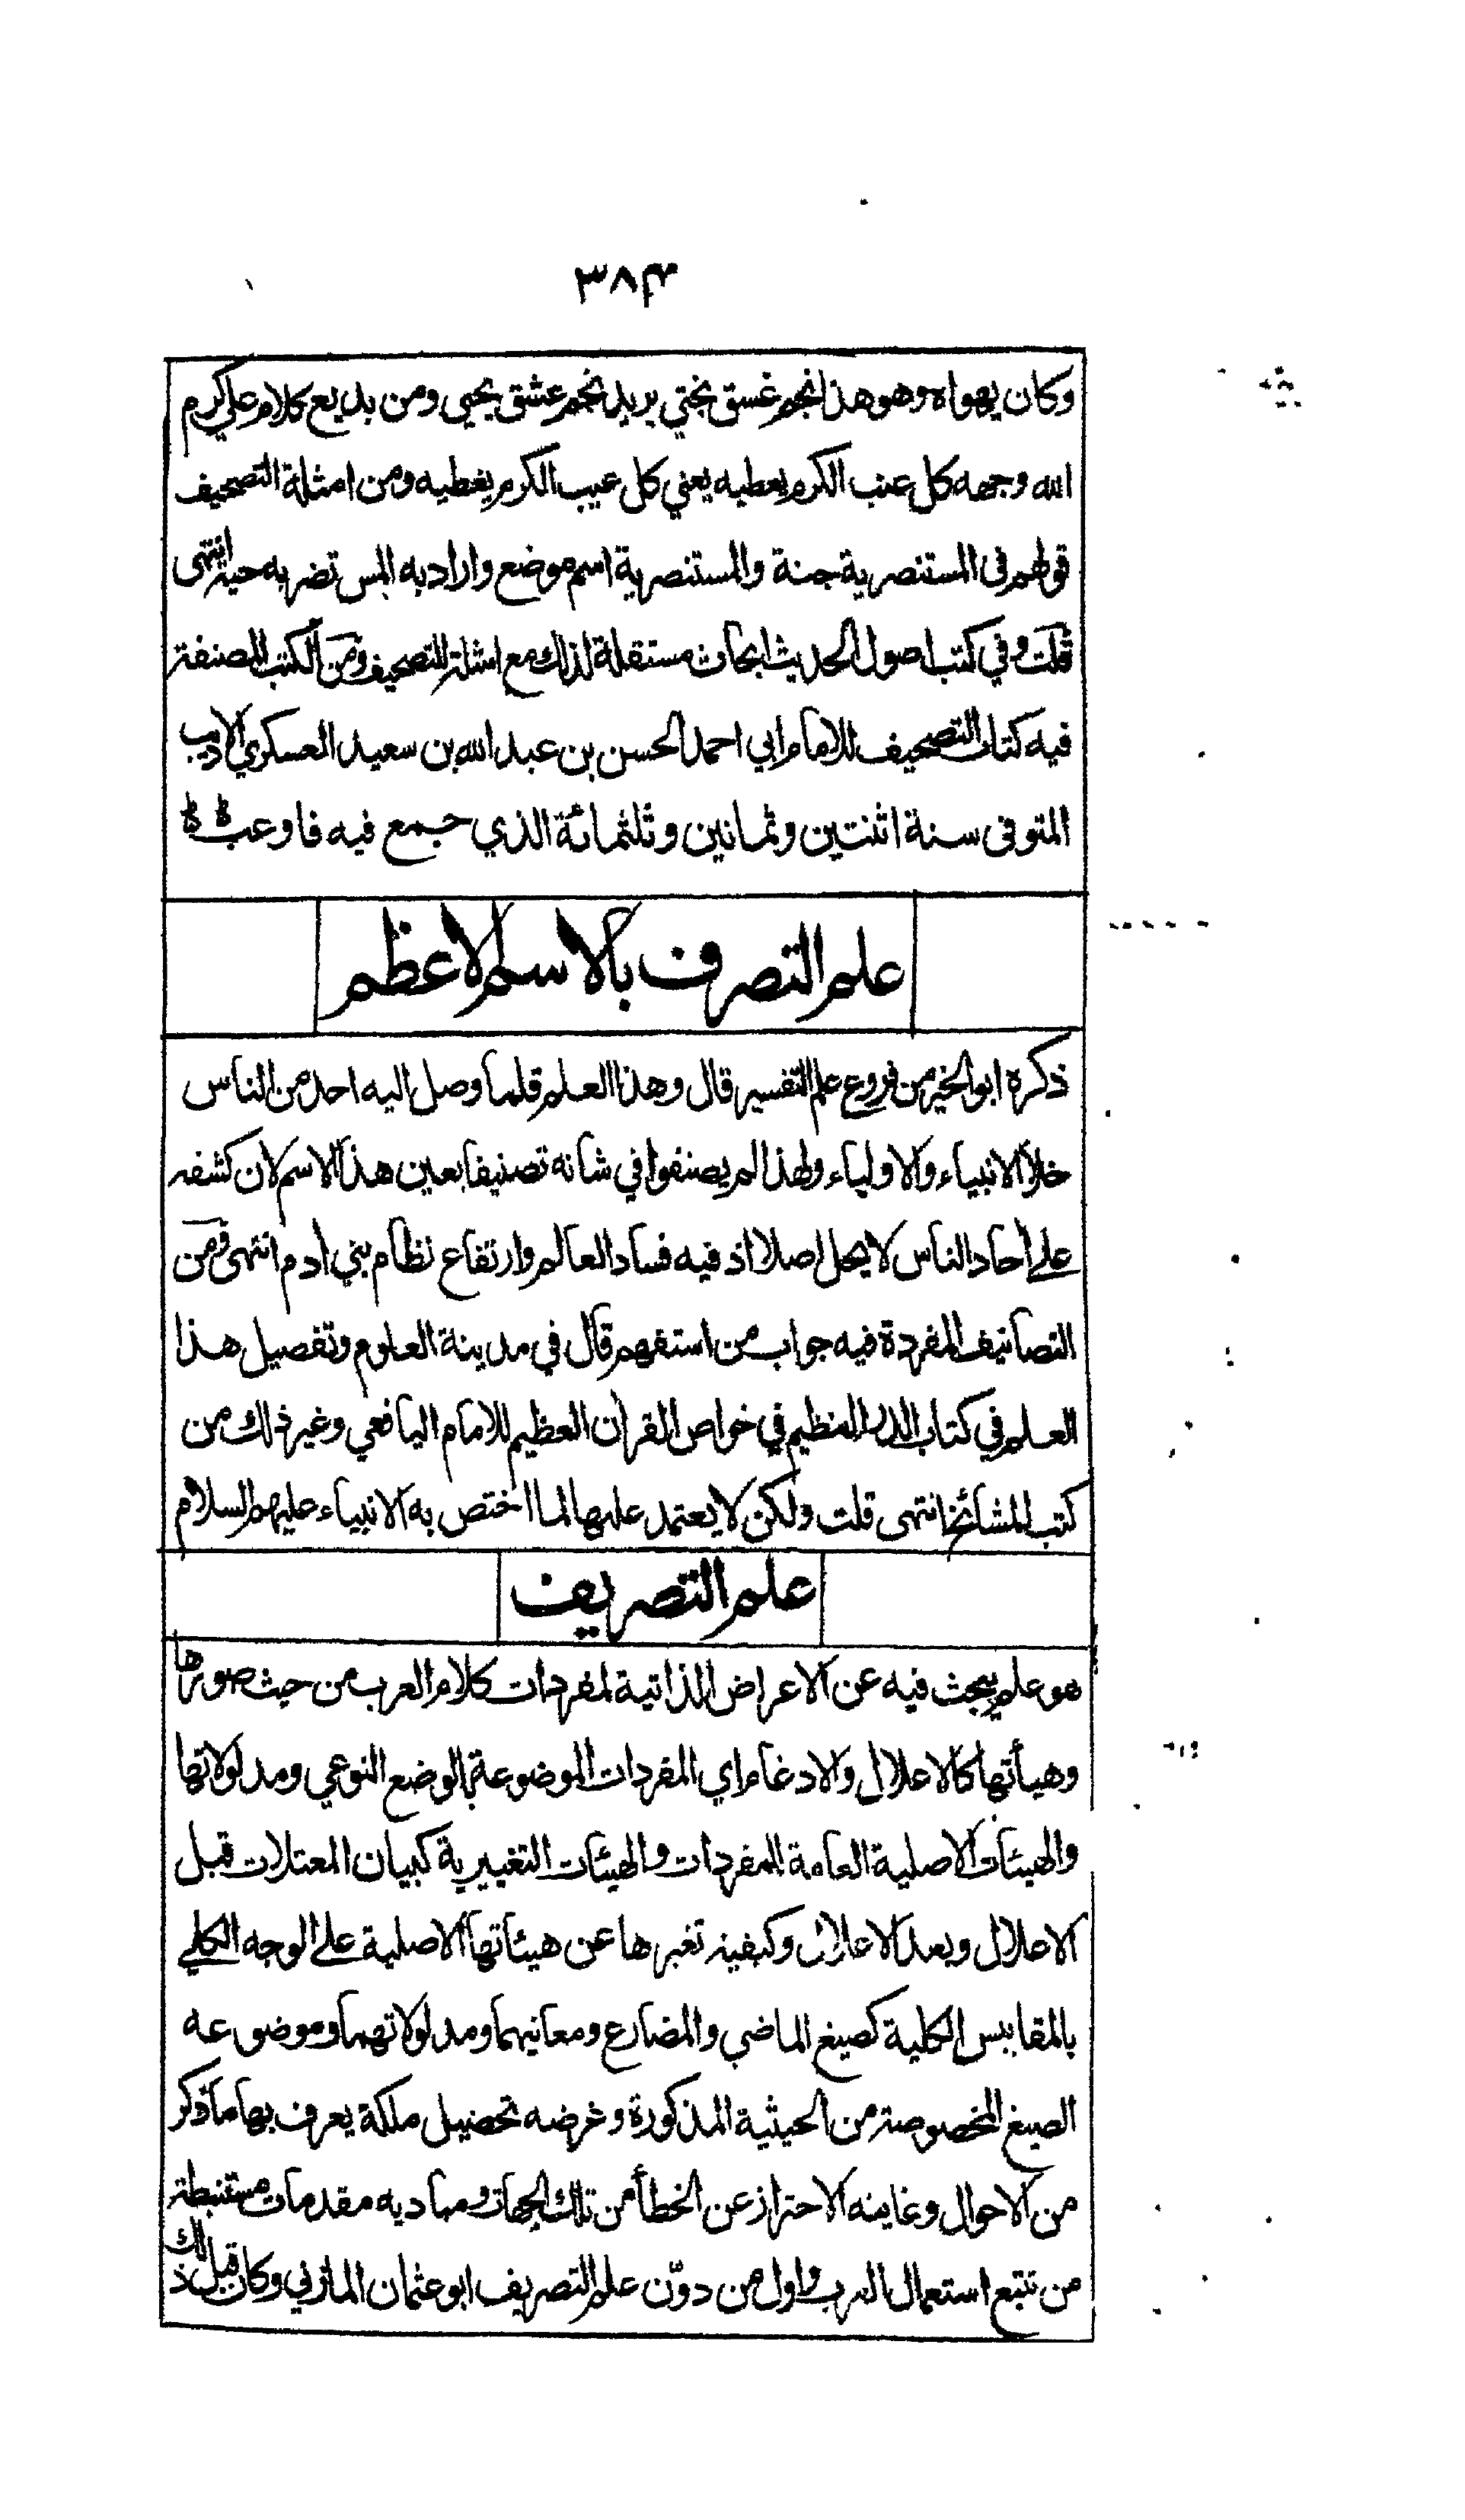 ٣٨٤
وكان يهواه وهو هذا نجم غسق نجتي يريد نجم عشق يحيى ومن بديع كلام علي كرم
الله وجهه كل عنب الكرم يعطيه يعني كل عيب الكرم يغطيه ومن امثلة التصحيف
قولهم في المستنصرية جنة والمستنصرية اسم موضع واراد به المس تضربه حية انتهى
قلت وفي كتب اصول الحديث ابحاث مستقلة لذلك مع امثلة للتصحيف ومن الكتب المصنفة
فيه كتاب التصحيف للامام ابي احمد الحسن بن عبد الله بن سعيد العسكري الاديب
المتوفى سنة اثنتين وثمانين وثلثمائة الذي جمع فيه فاوعب
علم التصرف بالاسم الاعظم
ذكره ابو الخير من فروع علم التفسير قال وهذا العلم قلما وصل اليه احد من الناس
خلا الانبياء والاولياء ولهذا لم يصنفوا في شانه تصنيفا بعين هذا الاسم لان كشفه
على احاد الناس لا يحل اصلا اذ فيه فساد العالم وارتفاع نظام بني ادم انتهى ومن
التصانيف المفردة فيه جواب من استفهم قال في مدينة العلوم وتفصيل هذا
العلم في كتاب الدر النظيم في خواص القران العظيم للامام اليافعي وغير ذلك من
كتب المشائخ انتهى قلت ولكن لا يعتمد عليها لما اختص به الانبياء عليهم السلام
علم التصريف
هو علم يبحث فيه عن الاعراض الذاتية لمفردات كلام العرب من حيث صورها
وهيأتها كالاعلال والادغام اي المفردات الموضوعة بالوضع النوعي ومدلولاتها
والهيئات الاصلية العامة للمفردات والهيئات التغييرية كبيان المعتلات قبل
الاعلال وبعد الاعلال وكيفية تغيرها عن هيئاتها الاصلية على الوجه الكلي
بالمقاييس الكلية كصيغ الماضي والمضارع ومعانيهما ومدلولاتهما وموضوعه
الصيغ المخصوصة من الحيثية المذكورة وغرضه تحصيل ملكة يعرف بها ما ذكر
من الاحوال وغايته الاحتراز عن الخطأ من تلك الجهات ومباديه مقدمات مستنبطة
من تتبع استعمال العرب واول من دوّن علم التصريف ابو عثمان المازني وكان قبل ذلك